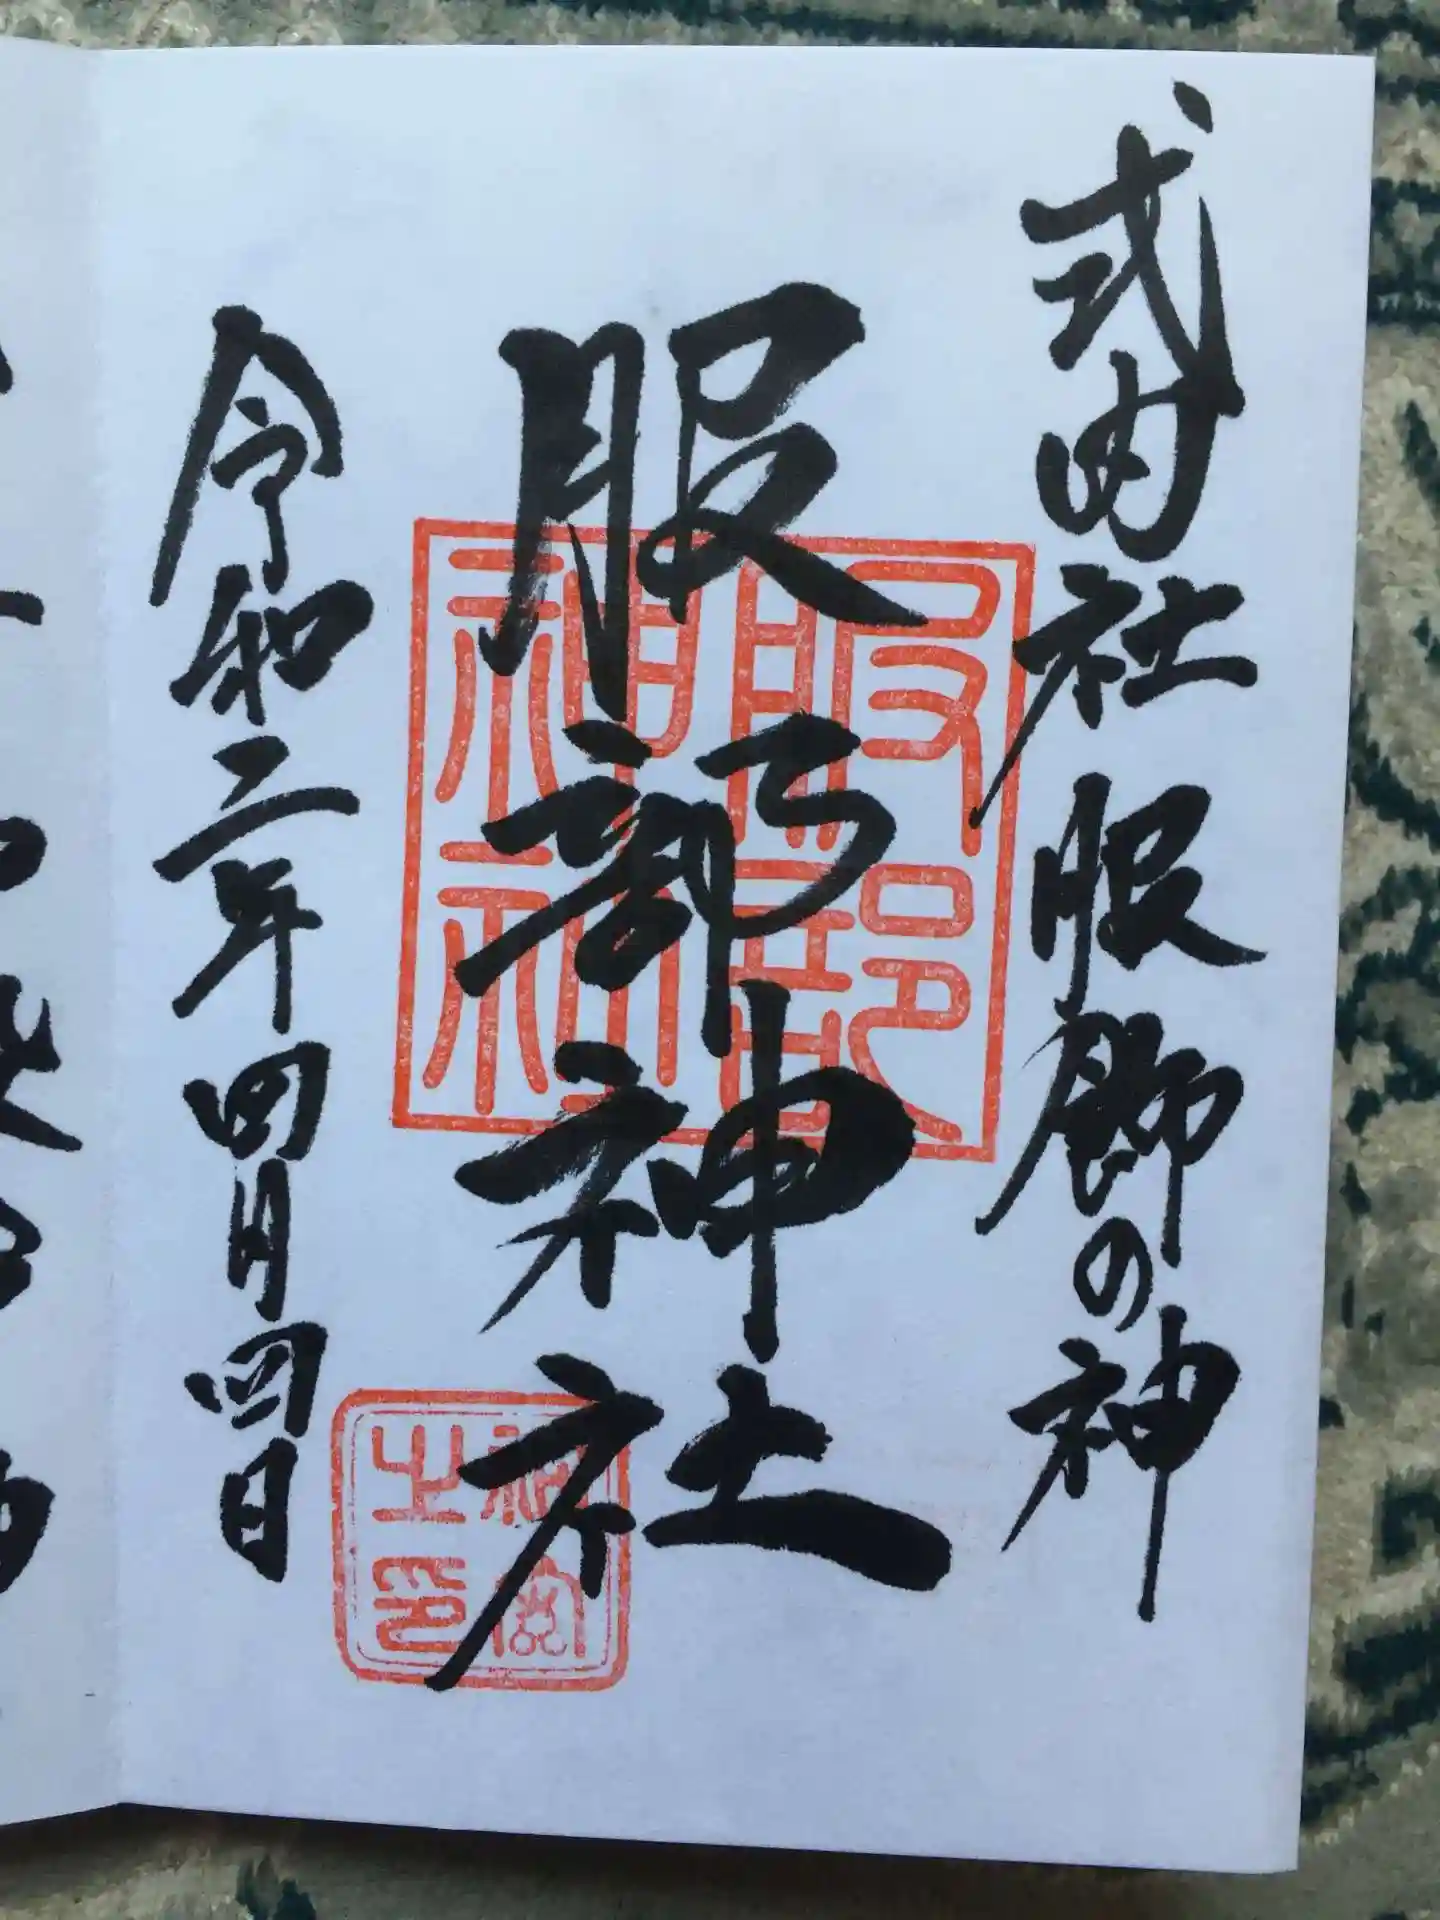 式内社 服飾の神
服部神社
令和二年四月四日
服部
神社
神
之印